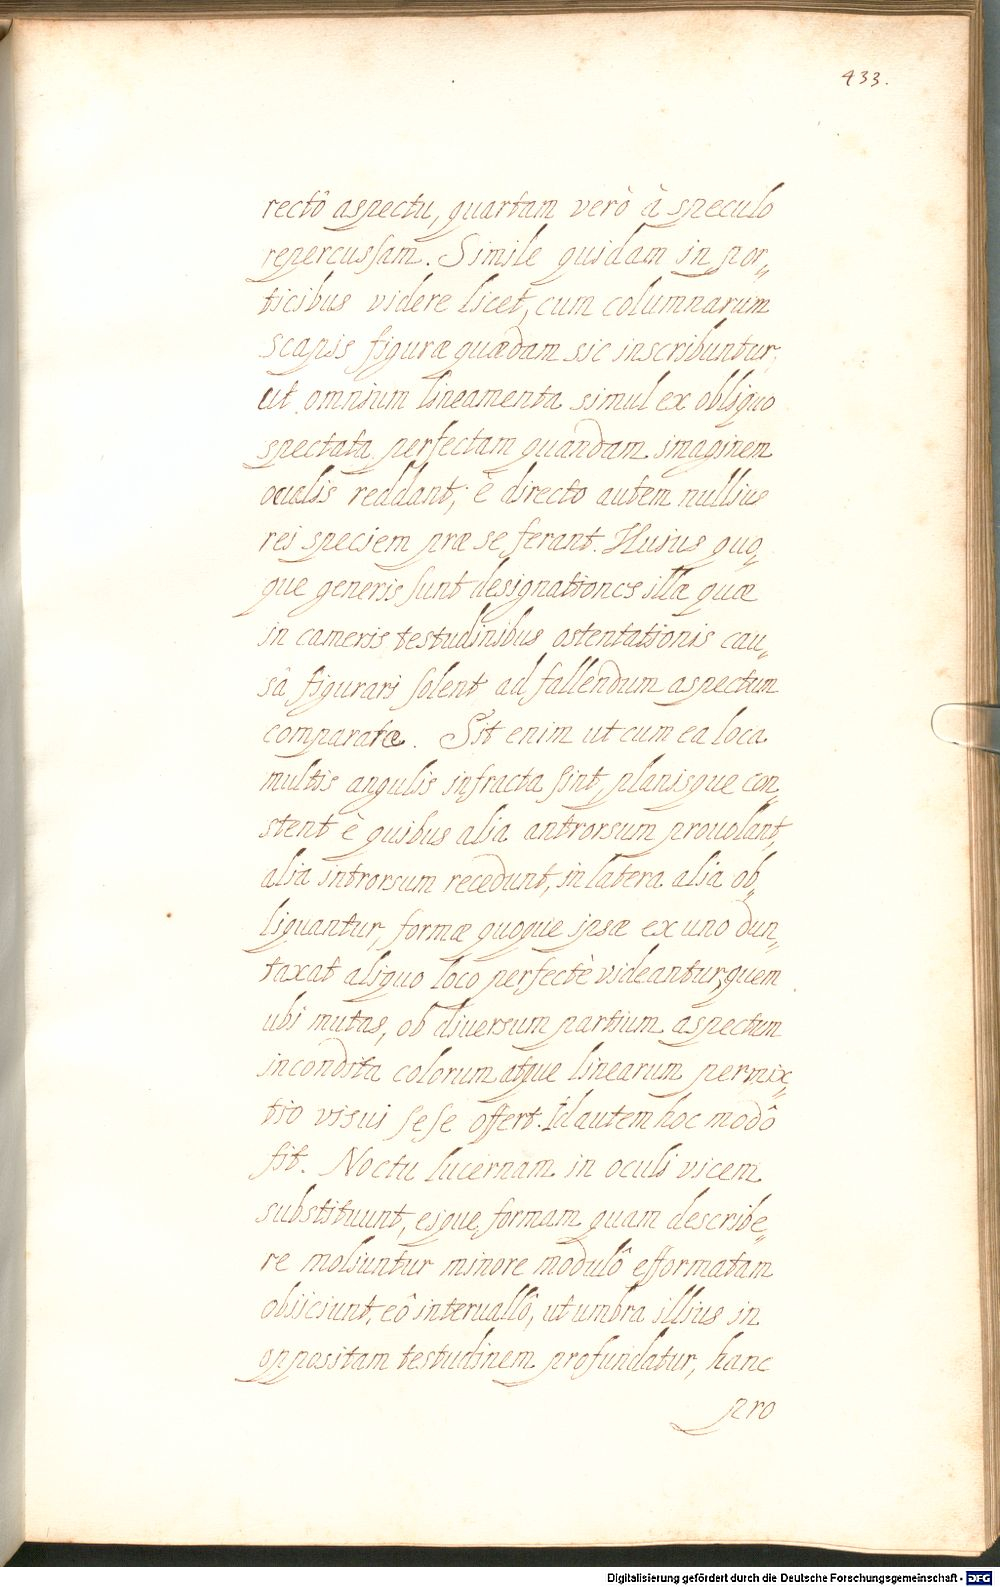 433.
rectô aspectu, quartam verò à speculo
repercussam. Simile quidam in por„
ticibus videre licet, cum columnarum
scapis figuræ quædam sic inscribuntur,
ut omnium lineamenta simul ex obliquo
spectata perfectam quandam imaginem
oculis reddant; è directo autem nullius
rei speciem præ se ferant. Huius quo„
que generis sunt designationes illæ quæ
in cameris testudinibus ostentationis cau„
sâ figurari solent ad fallendum aspectum
comparatæ. Sit enim ut cum ea loca
multis angulis infracta sint, planisque con„
stent è quibus alia antrorsum prouolant,
alia introrsum recedunt, in latera alia ob„
liquantur, formæ quoque ipsæ ex uno dun„
taxat aliquo loco perfectè videantur, quem
ubi mutas, ob diuersum partium aspectum
incondita colorum atque linearum permix„
tio visui sese offert. Id autem hoc modô
fit. Noctu lucernam in oculi vicem
substituunt, eique formam quam describe„
re moliuntur minore modulô efformatam
obiiciunt, eô interuallô, ut umbra illius in
oppositam testudinem profundatur, hanc
pro
Digitalisierung gefördert durch die Deutsche Forschungsgemeinschaft - DFG